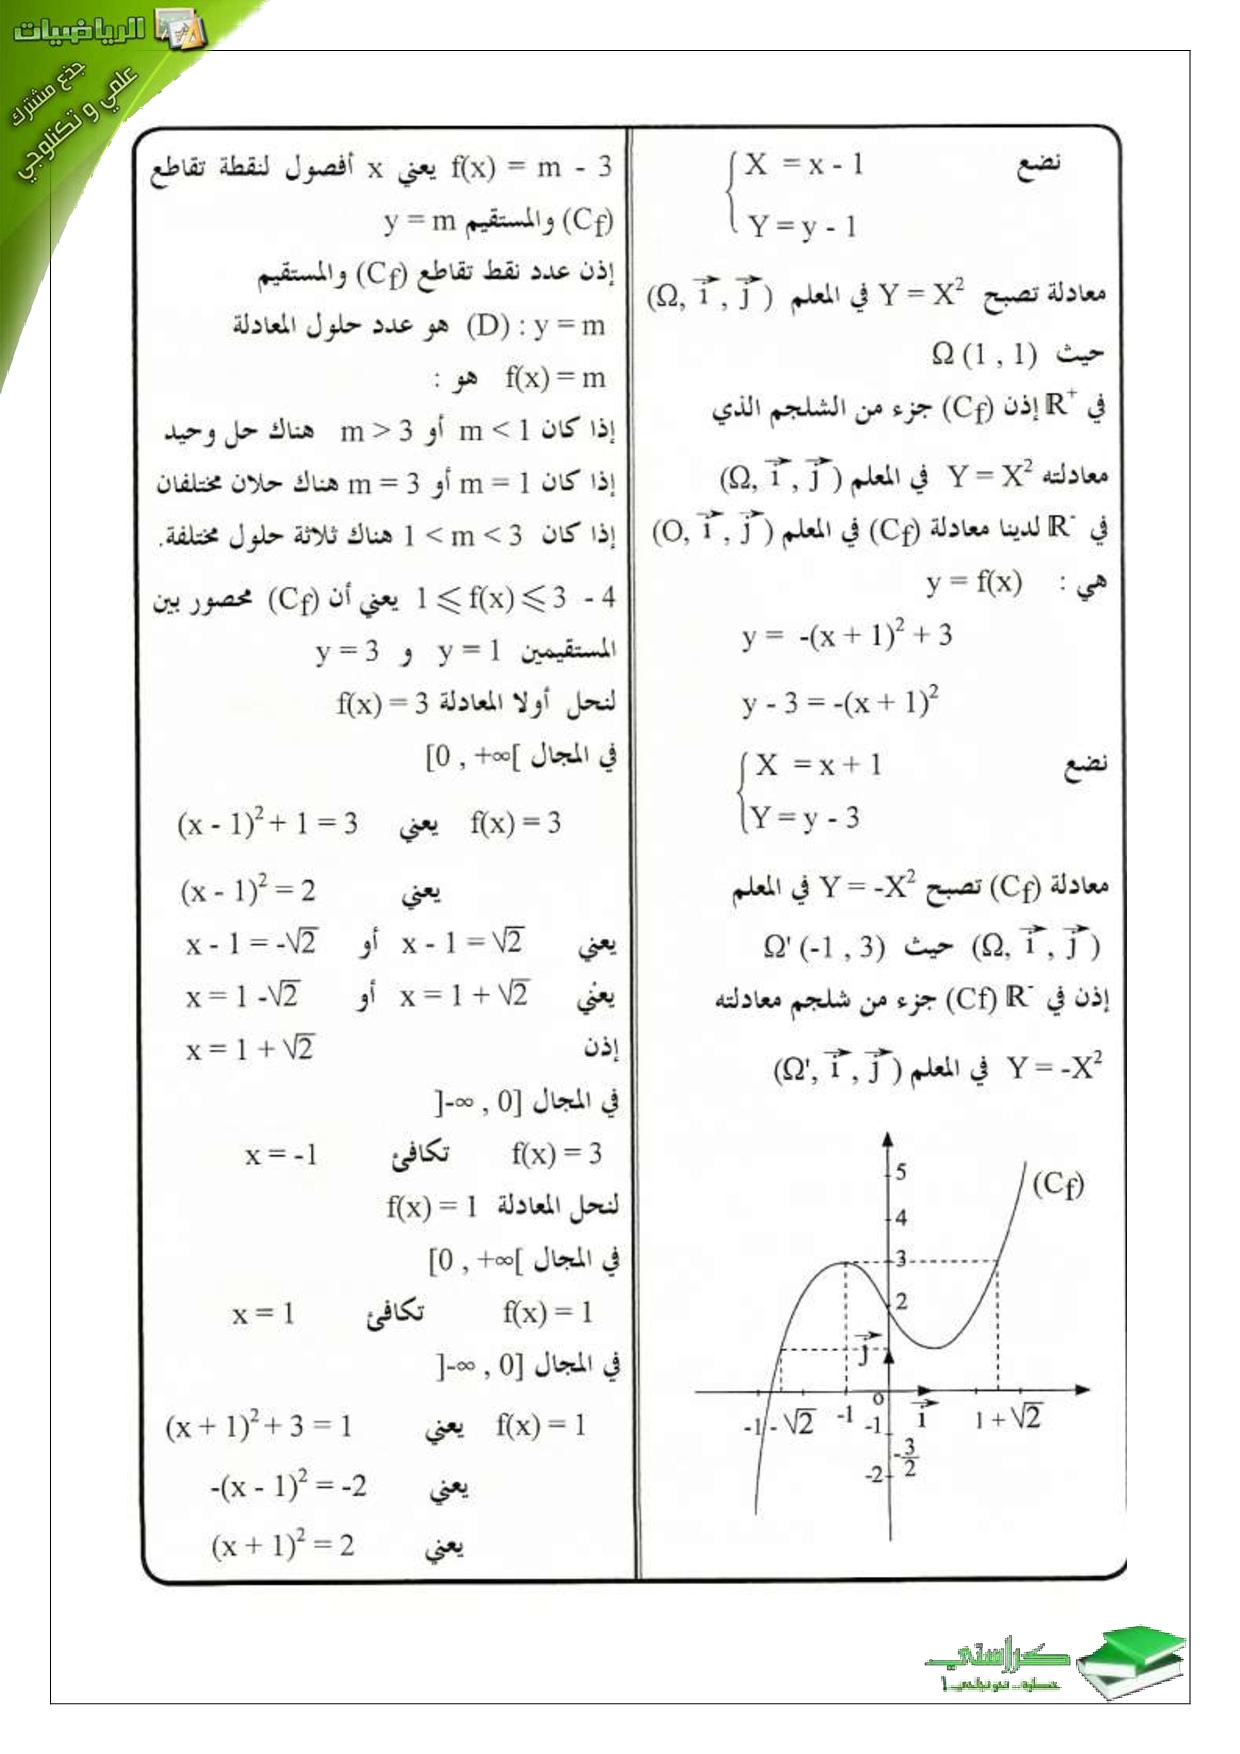 الرياضيات
جذع مشترك
علمي و تكنلوجي
نضع
X = x - 1
Y = y - 1
معادلة تصبح Y = X² في المعلم (Ω, i, j)
حيث Ω (1 , 1)
في ℝ⁺ إذن (Cf) جزء من الشلجم الذي
معادلته Y = X² في المعلم (Ω, i, j)
في ℝ⁻ لدينا معادلة (Cf) في المعلم (O, i, j)
هي : y = f(x)
y = -(x + 1)² + 3
y - 3 = -(x + 1)²
نضع
X = x + 1
Y = y - 3
معادلة (Cf) تصبح Y = -X² في المعلم
(Ω, i, j) حيث Ω' (-1 , 3)
إذن في ℝ⁻ (Cf) جزء من شلجم معادلته
Y = -X² في المعلم (Ω', i, j)
(Cf)
5
4
3
2
j
o
i
-1 - √2
-1
-1
1 + √2
-3/2
-2
3 - f(x) = m يعني x أفصول لنقطة تقاطع
(Cf) والمستقيم y = m
إذن عدد نقط تقاطع (Cf) والمستقيم
(D) : y = m هو عدد حلول المعادلة
f(x) = m هو :
إذا كان m < 1 أو m > 3 هناك حل وحيد
إذا كان m = 1 أو m = 3 هناك حلان مختلفان
إذا كان 1 < m < 3 هناك ثلاثة حلول مختلفة.
4 - 1 ⩽ f(x) ⩽ 3 يعني أن (Cf) محصور بين
المستقيمين y = 1 و y = 3
لنحل أولا المعادلة f(x) = 3
في المجال [0 , +∞[
f(x) = 3 يعني (x - 1)² + 1 = 3
يعني (x - 1)² = 2
يعني x - 1 = √2 أو x - 1 = -√2
يعني x = 1 + √2 أو x = 1 -√2
إذن x = 1 + √2
في المجال ]-∞ , 0]
f(x) = 3 تكافئ x = -1
لنحل المعادلة f(x) = 1
في المجال [0 , +∞[
f(x) = 1 تكافئ x = 1
في المجال ]-∞ , 0]
f(x) = 1 يعني (x + 1)² + 3 = 1
يعني -(x - 1)² = -2
يعني (x + 1)² = 2
كراستي